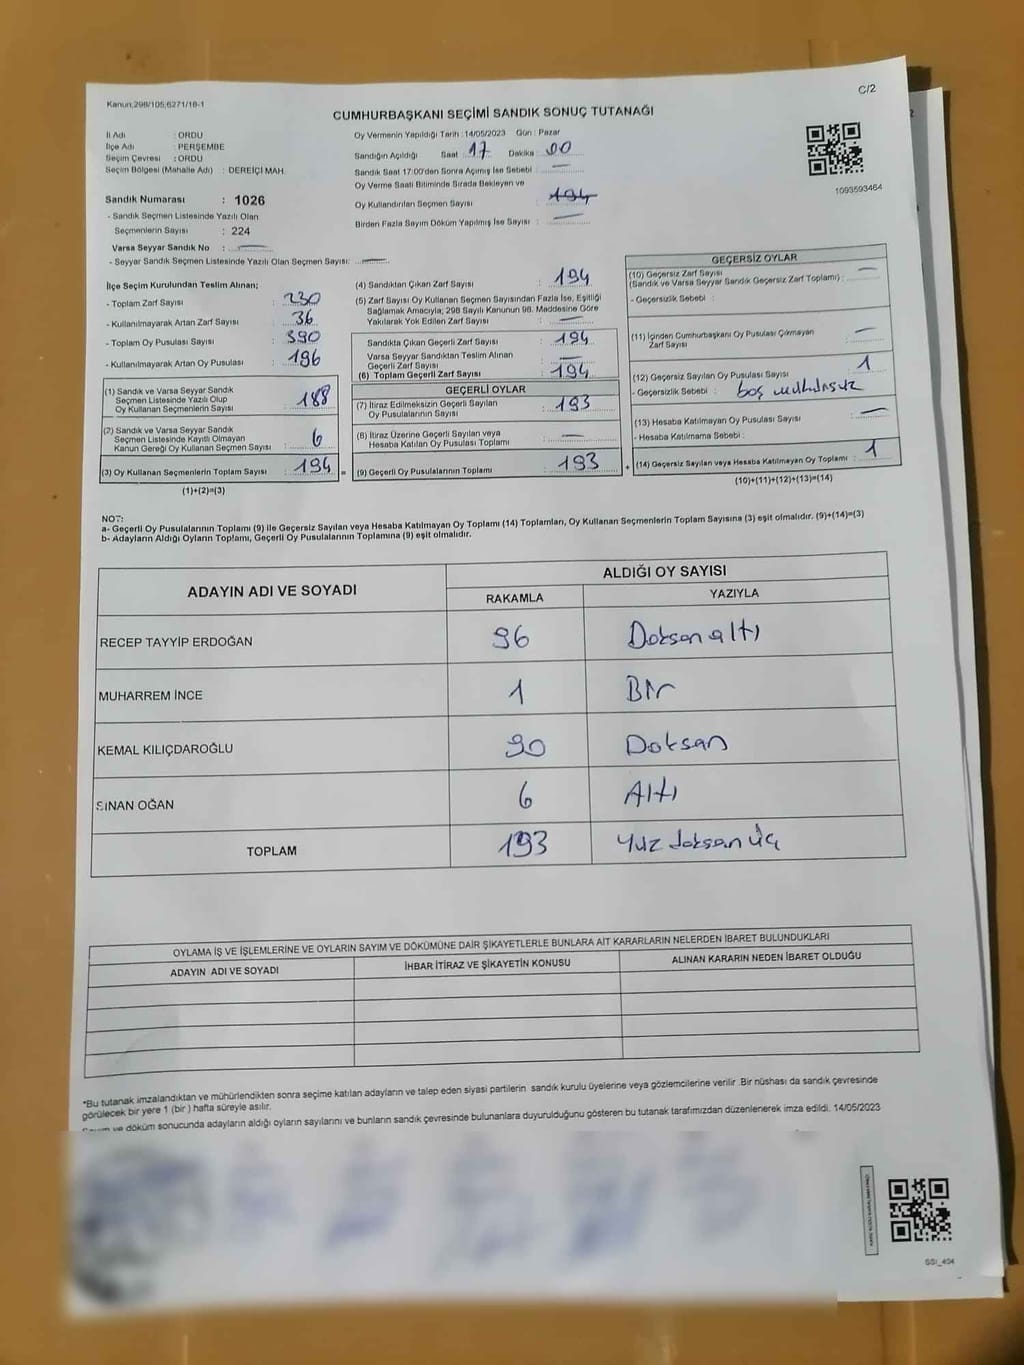 Kanun;298/105,6271/18-1
C/2
CUMHURBAŞKANI SEÇİMİ SANDIK SONUÇ TUTANAĞI
İl Adı : ORDU
İlçe Adı : PERŞEMBE
Seçim Çevresi : ORDU
Seçim Bölgesi (Mahalle Adı) : DEREİÇİ MAH.
Sandık Numarası : 1026
- Sandık Seçmen Listesinde Yazılı Olan
Seçmenlerin Sayısı : 224
Varsa Seyyar Sandık No :
- Seyyar Sandık Seçmen Listesinde Yazılı Olan Seçmen Sayısı:
Oy Vermenin Yapıldığı Tarih :14/05/2023 Gün : Pazar
Sandığın Açıldığı Saat 17 Dakika 00
Sandık Saat 17:00'den Sonra Açımış İse Sebebi :
Oy Verme Saati Bitiminde Sırada Bekleyen ve
Oy Kullandırılan Seçmen Sayısı : 194
Birden Fazla Sayım Döküm Yapılmış İse Sayısı :
1093593464
İlçe Seçim Kurulundan Teslim Alınan;
- Toplam Zarf Sayısı : 230
- Kullanılmayarak Artan Zarf Sayısı : 36
- Toplam Oy Pusulası Sayısı : 390
- Kullanılmayarak Artan Oy Pusulası : 196
(1) Sandık ve Varsa Seyyar Sandık
Seçmen Listesinde Yazılı Olup
Oy Kullanan Seçmenlerin Sayısı : 188
(2) Sandık ve Varsa Seyyar Sandık
Seçmen Listesinde Kayıtlı Olmayan
Kanun Gereği Oy Kullanan Seçmen Sayısı : 6
(3) Oy Kullanan Seçmenlerin Toplam Sayısı : 194 =
(1)+(2)=(3)
(4) Sandıktan Çıkan Zarf Sayısı : 194
(5) Zarf Sayısı Oy Kullanan Seçmen Sayısından Fazla İse, Eşitliği
Sağlamak Amacıyla; 298 Sayılı Kanunun 98. Maddesine Göre
Yakılarak Yok Edilen Zarf Sayısı :
Sandıkta Çıkan Geçerli Zarf Sayısı : 194
Varsa Seyyar Sandıktan Teslim Alınan
Geçerli Zarf Sayısı :
(6) Toplam Geçerli Zarf Sayısı : 194
GEÇERLİ OYLAR
(7) İtiraz Edilmeksizin Geçerli Sayılan
Oy Pusulalarının Sayısı : 193
(8) İtiraz Üzerine Geçerli Sayılan veya
Hesaba Katılan Oy Pusulası Toplamı :
(9) Geçerli Oy Pusulalarının Toplamı : 193 +
GEÇERSİZ OYLAR
(10) Geçersiz Zarf Sayısı
(Sandık ve Varsa Seyyar Sandık Geçersiz Zarf Toplamı) :
- Geçersizlik Sebebi :
(11) İçinden Cumhurbaşkanı Oy Pusulası Çıkmayan
Zarf Sayısı :
(12) Geçersiz Sayılan Oy Pusulası Sayısı : 1
- Geçersizlik Sebebi : boş mühürsüz
(13) Hesaba Katılmayan Oy Pusulası Sayısı :
- Hesaba Katılmama Sebebi :
(14) Geçersiz Sayılan veya Hesaba Katılmayan Oy Toplamı : 1
(10)+(11)+(12)+(13)=(14)
NOT:
a- Geçerli Oy Pusulalarının Toplamı (9) ile Geçersiz Sayılan veya Hesaba Katılmayan Oy Toplamı (14) Toplamları, Oy Kullanan Seçmenlerin Toplam Sayısına (3) eşit olmalıdır. (9)+(14)=(3)
b- Adayların Aldığı Oyların Toplamı, Geçerli Oy Pusulalarının Toplamına (9) eşit olmalıdır.
ADAYIN ADI VE SOYADI
ALDIĞI OY SAYISI
RAKAMLA YAZIYLA
RECEP TAYYİP ERDOĞAN 96 Doksan altı
MUHARREM İNCE 1 Bir
KEMAL KILIÇDAROĞLU 90 Doksan
SİNAN OĞAN 6 Altı
TOPLAM 193 Yüz doksan üç
OYLAMA İŞ VE İŞLEMLERİNE VE OYLARIN SAYIM VE DÖKÜMÜNE DAİR ŞİKAYETLERLE BUNLARA AİT KARARLARIN NELERDEN İBARET BULUNDUKLARI
ADAYIN ADI VE SOYADI İHBAR İTİRAZ VE ŞİKAYETİN KONUSU ALINAN KARARIN NEDEN İBARET OLDUĞU
*Bu tutanak imzalandıktan ve mühürlendikten sonra seçime katılan adayların ve talep eden siyasi partilerin sandık kurulu üyelerine veya gözlemcilerine verilir .Bir nüshası da sandık çevresinde
görülecek bir yere 1 (bir ) hafta süreyle asılır.
Sayım ve döküm sonucunda adayların aldığı oyların sayılarını ve bunların sandık çevresinde bulunanlara duyurulduğunu gösteren bu tutanak tarafımızdan düzenlenerek imza edildi. 14/05/2023
SSI_404